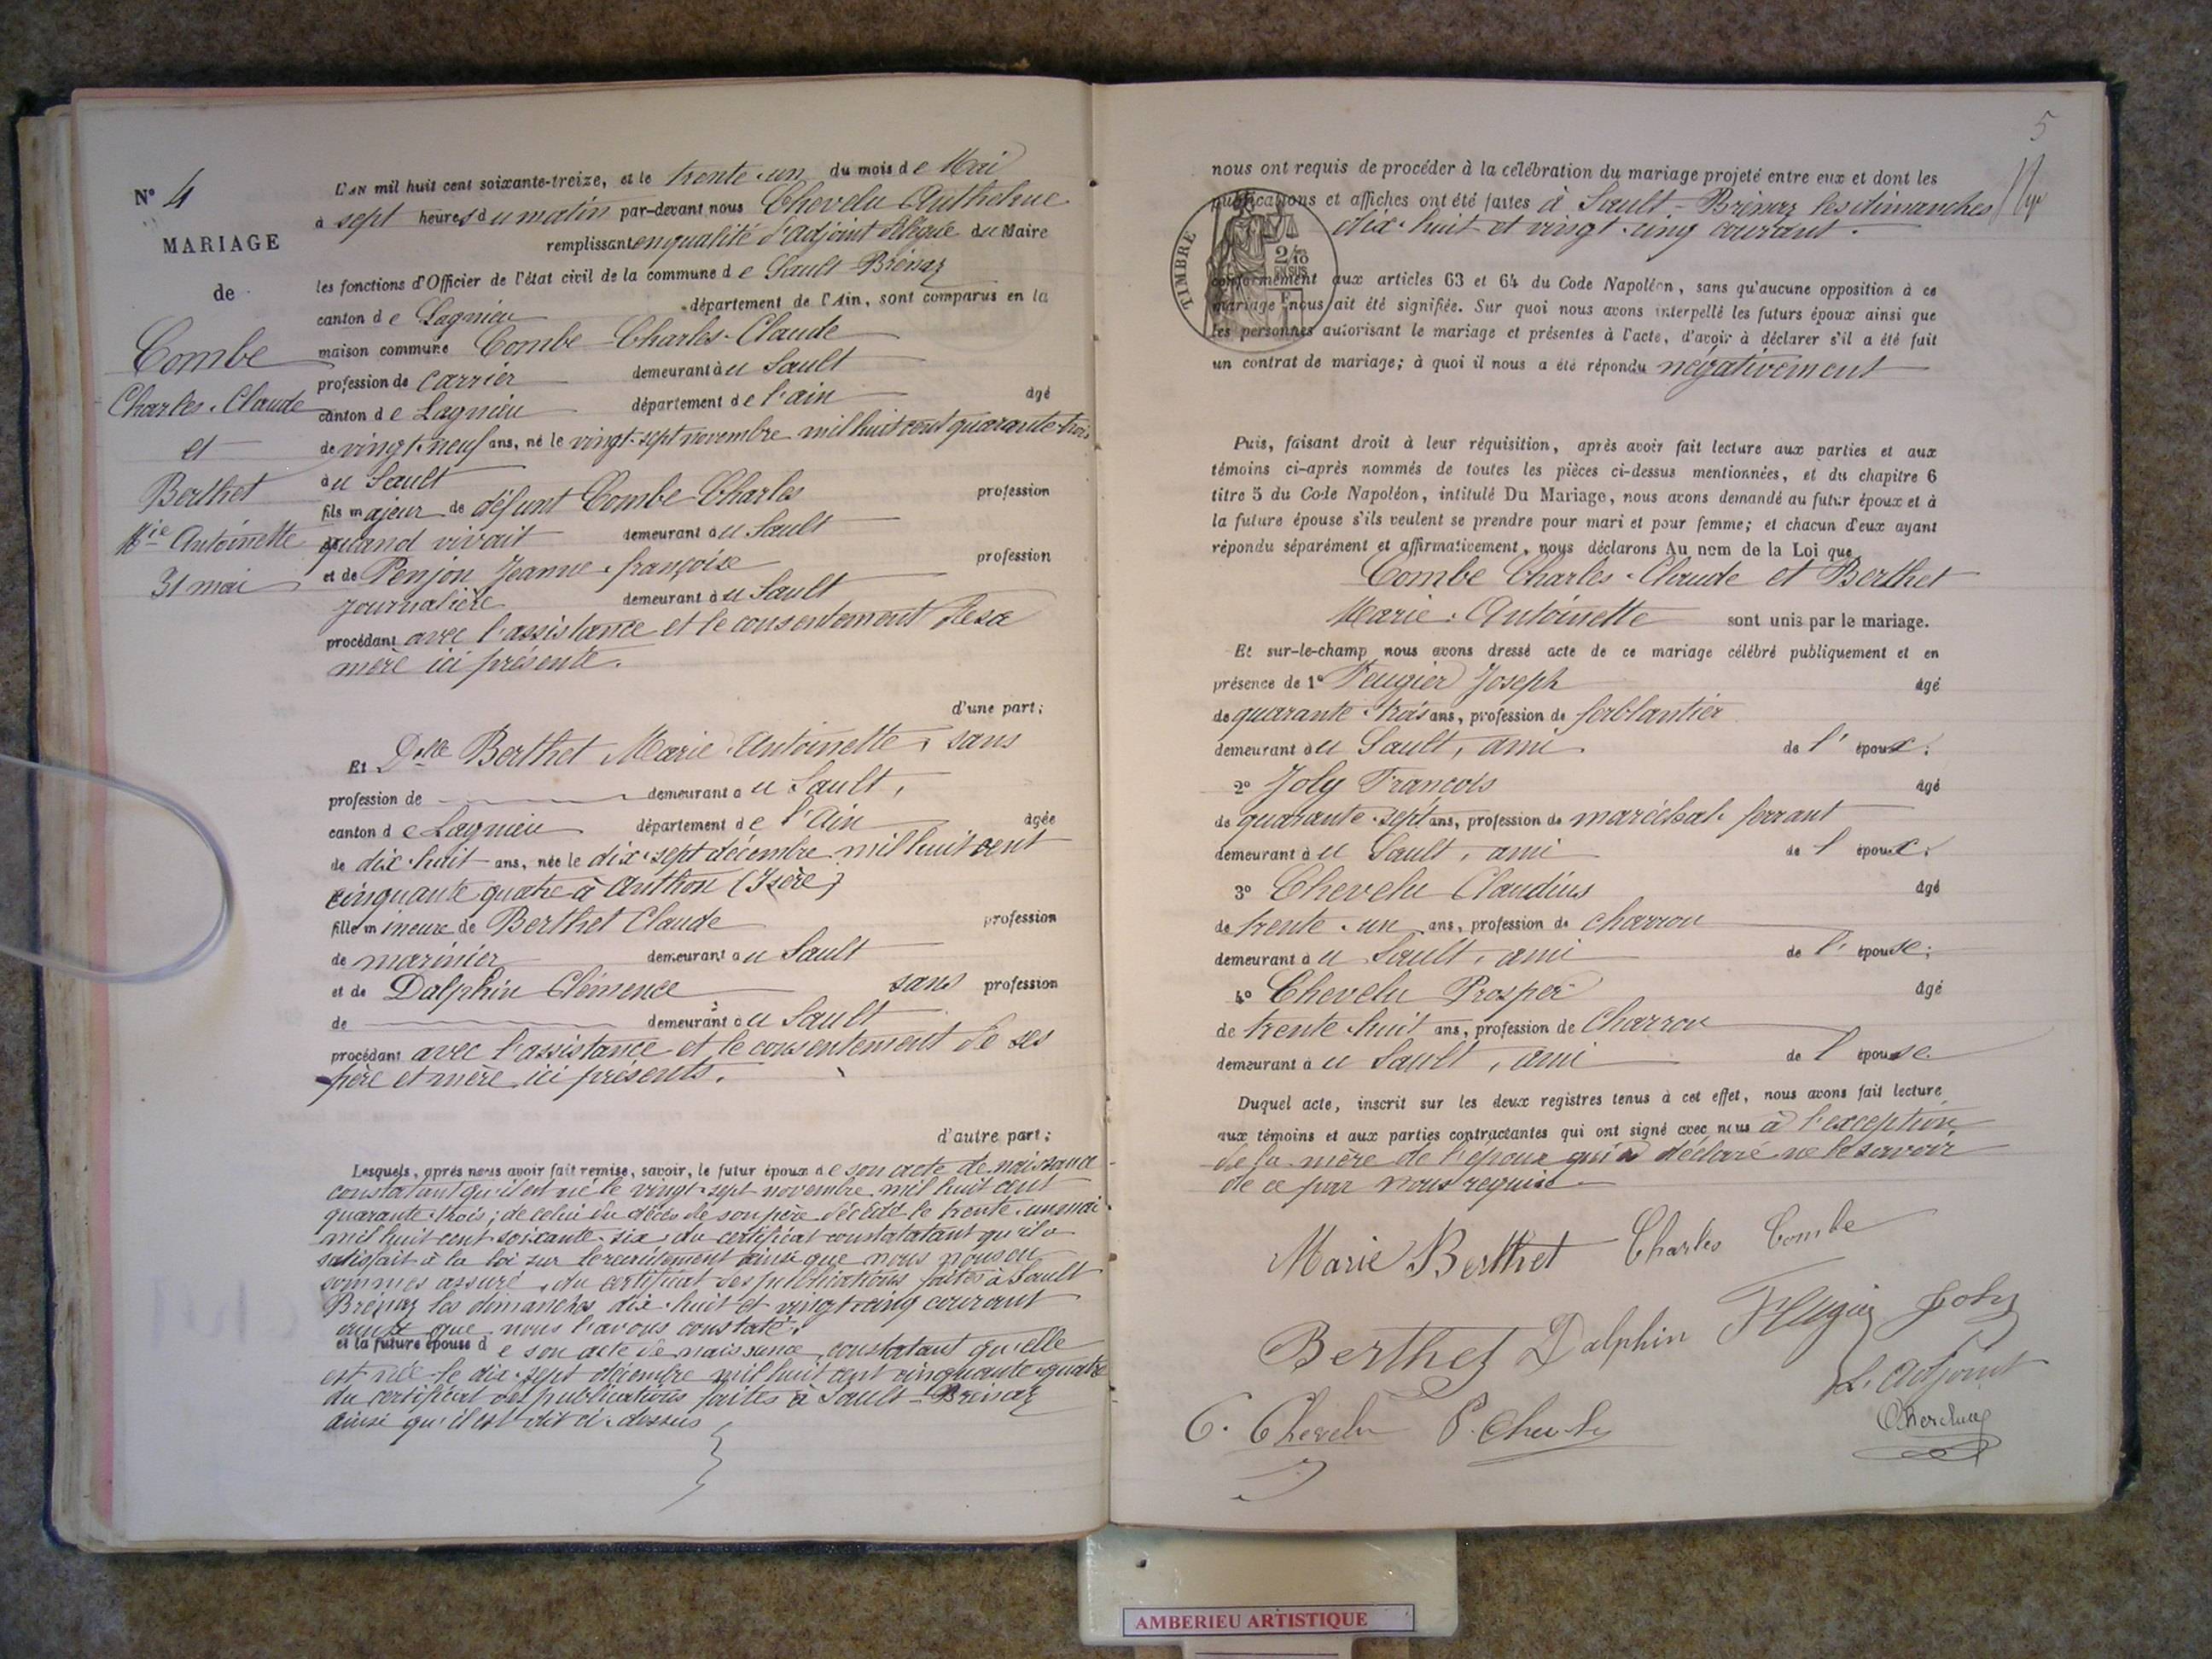 N° 4
MARIAGE
de
Combe
Charles-Claude
et
Berthet
Mie Antoinette
31 mai
L'AN mil huit cent soixante-treize, et le trente-un du mois de Mai
à sept heures du matin par-devant nous Chevelu Anthelme
remplissant en qualité d'adjoint délégué du Maire
les fonctions d'Officier de l'état civil de la commune de Sault-Brenaz
canton de Lagnieu département de l'Ain, sont comparus en la
maison commune Combe Charles-Claude
profession de carrier demeurant à u Sault
canton de Lagnieu département de l'ain âgé
de vingt-neuf ans, né le vingt-sept novembre mil huit cent quarante-trois
à u Sault
fils majeur de défunt Combe Charles profession
quand vivait demeurant à u Sault
et de Penjon Jeanne-françoise profession
journalière demeurant à u Sault
procédant avec l'assistance et le consentement de sa
mère ici présente.
d'une part;
Et Delle Berthet Marie-Antoinette, sans
profession de demeurant à u Sault,
canton de Lagnieu département de l'Ain âgée
de dix-huit ans, née le dix-sept décembre mil huit cent
cinquante quatre à Anthon (Isère)
fille mineure de Berthet Claude profession
de marinier demeurant à u Sault
et de Dalphin Clémence sans profession
de demeurant à u Sault
procédant avec l'assistance et le consentement de ses
père et mère ici présents.
d'autre part;
Lesquels, après nous avoir fait remise, savoir, le futur époux de son acte de naissance
constatant qu'il est né le vingt-sept novembre mil huit cent
quarante-trois; de celui du décès de son père décédé le trente-un mai
mil huit cent soixante-six, du certificat constatatant qu'il a
satisfait à la loi sur le recrutement ainsi que nous nous en
sommes assuré, du certificat des publications faites à Sault
Brénaz les dimanches dix-huit et vingt-cinq courant
ainsi que nous l'avons constaté.
et la future épouse de son acte de naissance, constatant qu'elle
est née le dix-sept décembre mil huit cent cinquante-quatre
du certificat des publications faites à Sault-Brénaz
ainsi qu'il est dit ci-dessus
5
nous ont requis de procéder à la célébration du mariage projeté entre eux et dont les
publications et affiches ont été faites à Sault-Brénaz les dimanches
dix-huit et vingt-cinq courant.
TIMBRE
2/10
EN SUS
conformément aux articles 63 et 64 du Code Napoléon, sans qu'aucune opposition à ce
mariage nous ait été signifiée. Sur quoi nous avons interpellé les futurs époux ainsi que
les personnes autorisant le mariage et présentes à l'acte, d'avoir à déclarer s'il a été fait
un contrat de mariage; à quoi il nous a été répondu négativement
Puis, faisant droit à leur réquisition, après avoir fait lecture aux parties et aux
témoins ci-après nommés de toutes les pièces ci-dessus mentionnées, et du chapitre 6
titre 5 du Code Napoléon, intitulé Du Mariage, nous avons demandé au futur époux et à
la future épouse s'ils veulent se prendre pour mari et pour femme; et chacun d'eux ayant
répondu séparément et affirmativement, nous déclarons Au nom de la Loi que
Combe Charles-Claude et Berthet
Marie-Antoinette sont unis par le mariage.
Et sur-le-champ nous avons dressé acte de ce mariage célébré publiquement et en
présence de 1° Feugier Joseph âgé
de quarante-trois ans, profession de ferblantier
demeurant à u Sault, ami de l'époux;
2° Joly François âgé
de quarante-sept ans, profession de maréchal-ferrant
demeurant à u Sault, ami de l'époux;
3° Chevelu Claudius âgé
de trente-un ans, profession de charron
demeurant à u Sault, ami de l'épouse;
4° Chevelu Prosper âgé
de trente-huit ans, profession de Charron
demeurant à u Sault, ami de l'épouse.
Duquel acte, inscrit sur les deux registres tenus à cet effet, nous avons fait lecture
aux témoins et aux parties contractantes qui ont signé avec nous à l'exception
de la mère de l'époux qui a déclaré ne le savoir
de ce par nous requise
Marie Berthet Charles Combe
Berthet Dalphin Feugier Joly
L'adjoint
C. Chevelu P. Chevelu
Chevelu
AMBERIEU ARTISTIQUE